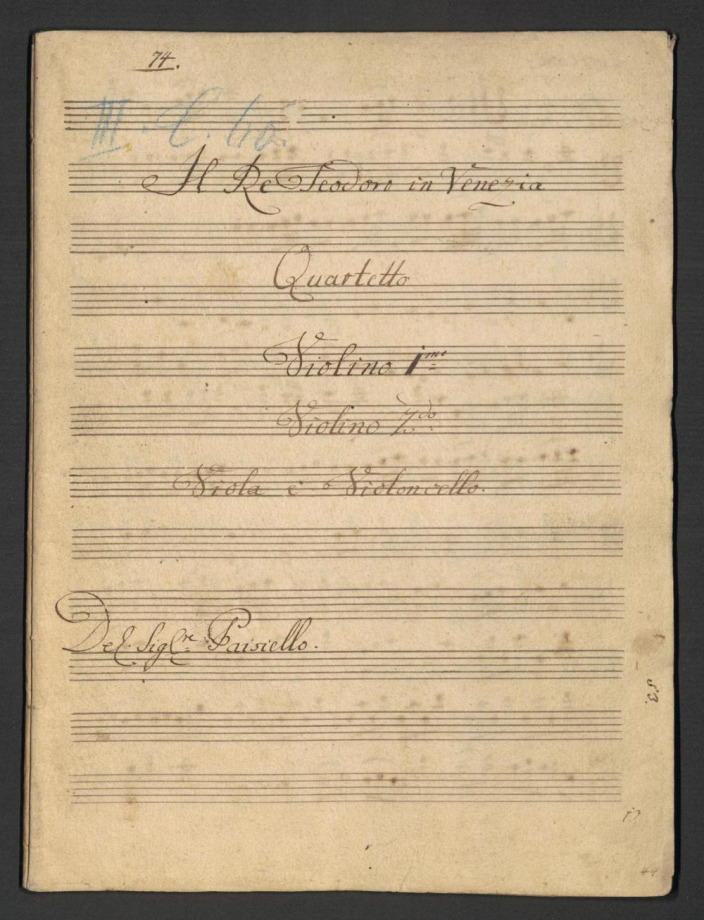 74.
III. C. 40.
Il Re Teodoro in Venezia
Quartetto
Violino 1mo
Violino 2do
Viola e Violoncello.
Del Sigre Paisiello.
53.